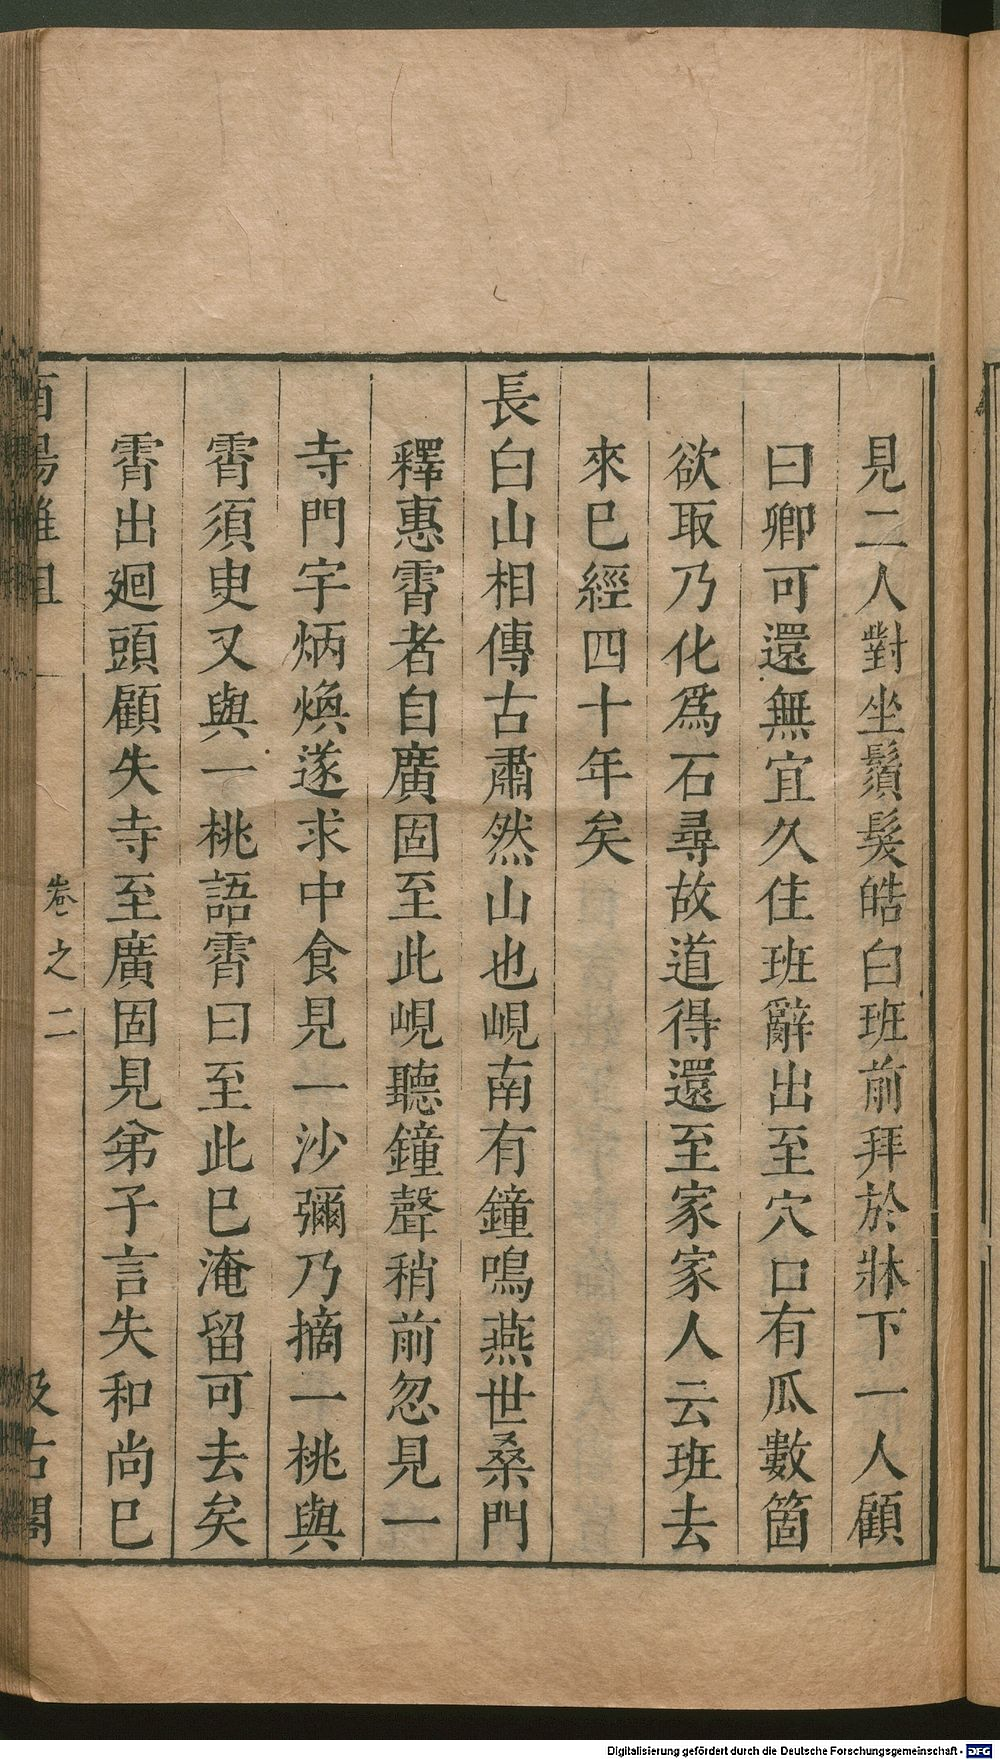 見二人對坐鬚髮皓白班前拜於牀下一人顧
曰卿可還無宜久住班辭出至穴口有瓜數箇
欲取乃化爲石尋故道得還至家家人云班去
來已經四十年矣
長白山相傳古肅然山也峴南有鐘鳴燕世桑門
釋惠霄者自廣固至此峴聽鐘聲稍前忽見一
寺門宇炳煥遂求中食見一沙彌乃摘一桃與
霄須臾又與一桃語霄曰至此已淹留可去矣
霄出廻頭顧失寺至廣固見弟子言失和尚已
酉陽雜俎 卷之二 汲古閣
Digitalisierung gefördert durch die Deutsche Forschungsgemeinschaft - DFG